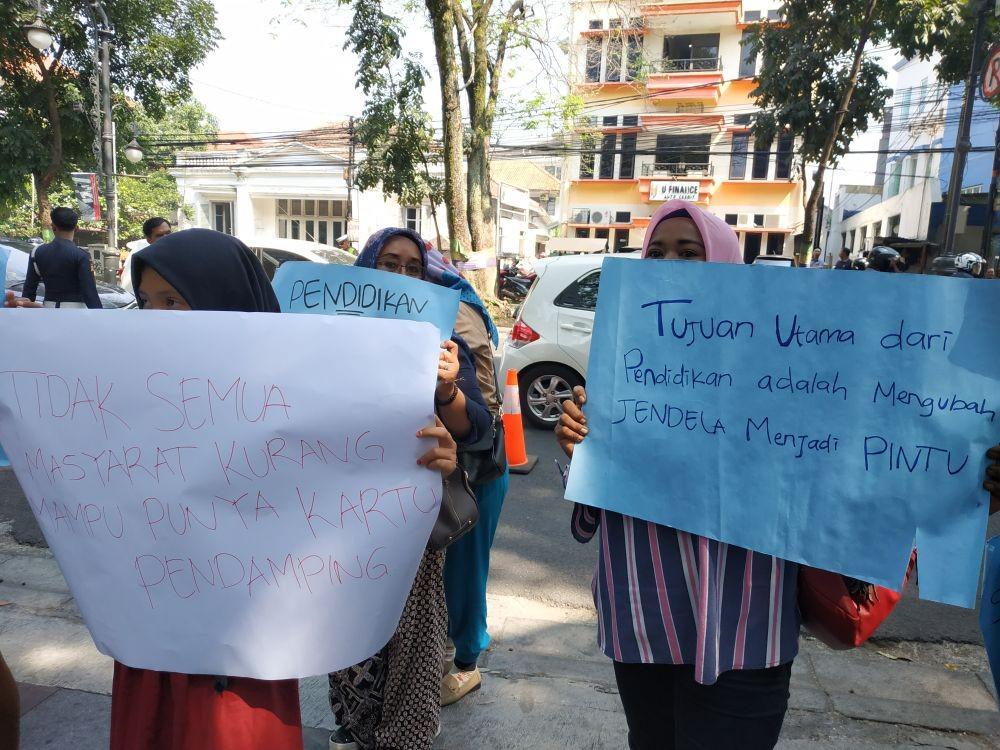 U FINANCE
PENDIDIKAN
TIDAK SEMUA
MASYARAT KURANG
MAMPU PUNYA KARTU
PENDAMPING
Tujuan Utama dari
Pendidikan adalah Mengubah
JENDELA Menjadi PINTU